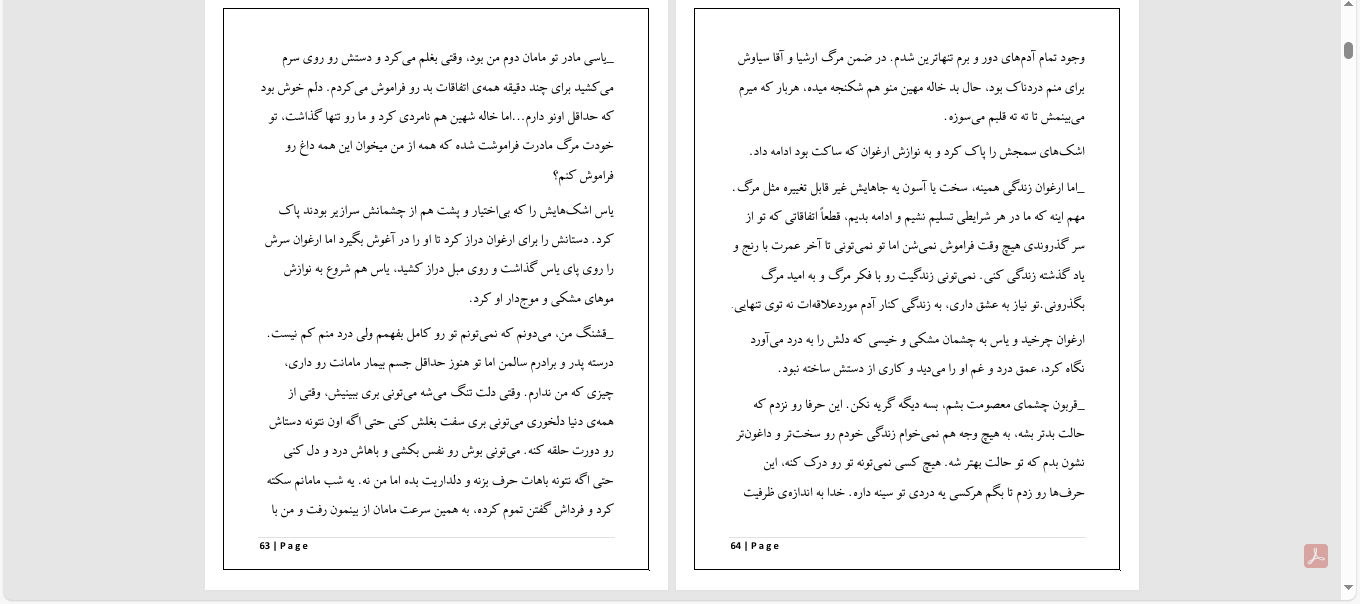 _یاسی مادر تو مامان دوم من بود، وقتی بغلم می‌کرد و دستش رو روی سرم
می‌کشید برای چند دقیقه همه‌ی اتفاقات بد رو فراموش می‌کردم. دلم خوش بود
که حداقل اونو دارم...اما خاله شهین هم نامردی کرد و ما رو تنها گذاشت، تو
خودت مرگ مادرت فراموشت شده که همه از من میخوان این همه داغ رو
فراموش کنم؟
یاس اشک‌هایش را که بی‌اختیار و پشت هم از چشمانش سرازیر بودند پاک
کرد. دستانش را برای ارغوان دراز کرد تا او را در آغوش بگیرد اما ارغوان سرش
را روی پای یاس گذاشت و روی مبل دراز کشید، یاس هم شروع به نوازش
موهای مشکی و موج‌دار او کرد.
_قشنگ من، می‌دونم که نمی‌تونم تو رو کامل بفهمم ولی درد منم کم نیست.
درسته پدر و برادرم سالمن اما تو هنوز حداقل جسم بیمار مامانت رو داری،
چیزی که من ندارم. وقتی دلت تنگ می‌شه می‌تونی بری ببینیش، وقتی از
همه‌ی دنیا دلخوری می‌تونی بری سفت بغلش کنی حتی اگه اون نتونه دستاش
رو دورت حلقه کنه. می‌تونی بوش رو نفس بکشی و باهاش درد و دل کنی
حتی اگه نتونه باهات حرف بزنه و دلداریت بده اما من نه. یه شب مامانم سکته
کرد و فرداش گفتن تموم کرده، به همین سرعت مامان از بینمون رفت و من با
63 | Page
وجود تمام آدم‌های دور و برم تنهاترین شدم. در ضمن مرگ ارشیا و آقا سیاوش
برای منم دردناک بود، حال بد خاله مهین منو هم شکنجه میده، هربار که میرم
می‌بینمش تا ته ته قلبم می‌سوزه.
اشک‌های سمجش را پاک کرد و به نوازش ارغوان که ساکت بود ادامه داد.
_اما ارغوان زندگی همینه، سخت یا آسون یه جاهایش غیر قابل تغییره مثل مرگ.
مهم اینه که ما در هر شرایطی تسلیم نشیم و ادامه بدیم، قطعاً اتفاقاتی که تو از
سر گذروندی هیچ وقت فراموش نمی‌شن اما تو نمی‌تونی تا آخر عمرت با رنج و
یاد گذشته زندگی کنی. نمی‌تونی زندگیت رو با فکر مرگ و به امید مرگ
بگذرونی.تو نیاز به عشق داری، به زندگی کنار آدم موردعلاقه‌ات نه توی تنهایی.
ارغوان چرخید و یاس به چشمان مشکی و خیسی که دلش را به درد می‌آورد
نگاه کرد، عمق درد و غم او را می‌دید و کاری از دستش ساخته نبود.
_قربون چشمای معصومت بشم، بسه دیگه گریه نکن. این حرفا رو نزدم که
حالت بدتر بشه، به هیچ وجه هم نمی‌خوام زندگی خودم رو سخت‌تر و داغون‌تر
نشون بدم که تو حالت بهتر شه. هیچ کسی نمی‌تونه تو رو درک کنه، این
حرف‌ها رو زدم تا بگم هرکسی یه دردی تو سینه داره. خدا به اندازه‌ی ظرفیت
64 | Page